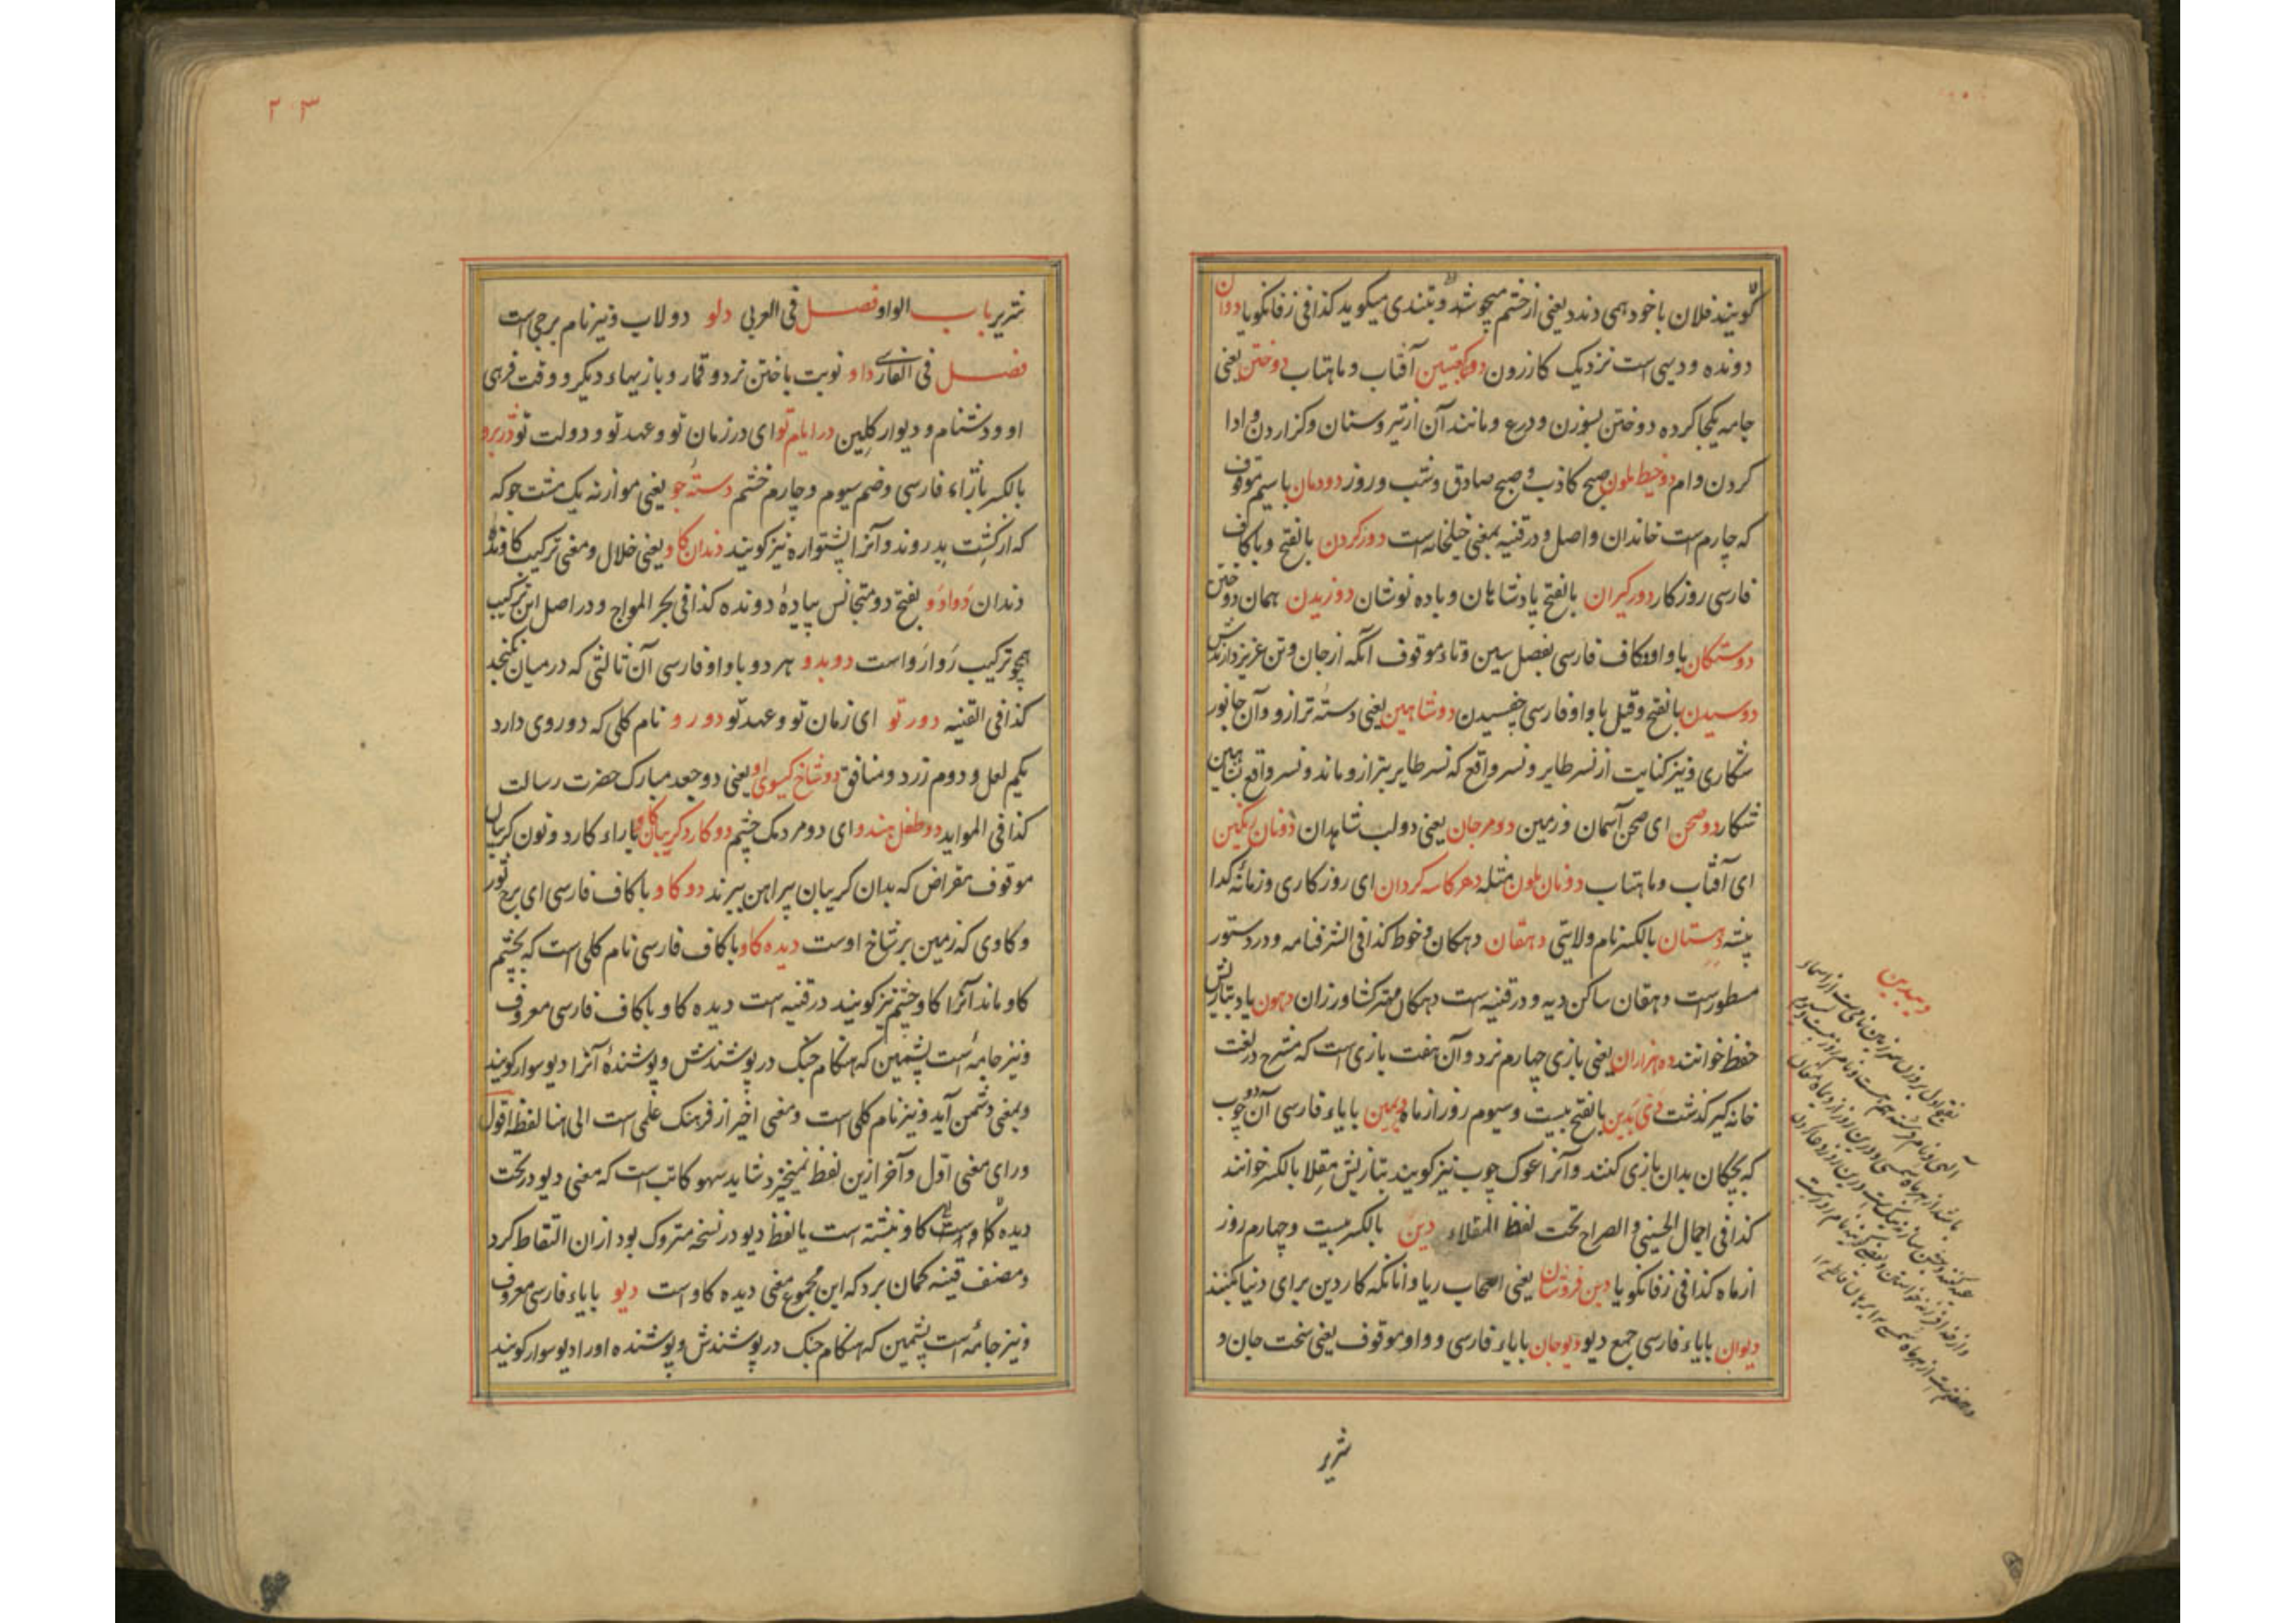 گویند فلان با خود همی دندد یعنی از خشم میجوشد و بتندی میگوید کذا فی زفانگویا دوان
دونده و دیهی است نزدیک کازرون دو کعبتین آفتاب و ماهتاب دوختن یعنی
جامه یکجا کرده دوختن بسوزن و درع و مانند آن از تیر و سنان و گزاردن و ادا
کردن وام دو خیط ملون صبح کاذب و صبح صادق و شب و روز دودمان با سیم موقوف
که چارم است خاندان و اصل و در قنیه بمعنی خیلخانه است دور کردن بالفتح و با کاف
فارسی روزکار دور گیران بالفتح پادشاهان و باده نوشان دوزیدن همان دوختن
دوستکان با واو و کاف فارسی بفصل سین و تاء موقوف آنکه از جان و تن عزیز دارندش
دوسیدن بالفتح وقیل با واو فارسی چفسیدن دو شاهین یعنی دستهٔ ترازو و آن جانور
شکاری و نیز کنایت از نسر طایر و نسر واقع که نسر طایر بترازو ماند و نسر واقع بشاهین
شکار دو صحن ای صحن آسمان و زمین دو مرجان یعنی دو لب شاهدان دو نان رنگین
ای آفتاب و ماهتاب دو نان ملون مثله دهر کاسه گردان ای روزکاری و زمانهٔ گدا
پیشه دهستان بالکسر نام ولایتی دهقان دهکان و خوط کذا فی الشرفنامه و در دستور
مسطور است دهقان ساکن دیه و در قنیه است دهکان مهتر کشاورزان دهون یاد بتازیش
حفظ خوانند ده هزاران یعنی بازی چهارم نرد و آن هفت بازی است که مشرح در لغت
خانه گیر گذشت دی بدین بالفتح بیست و سیوم روز از ماه دیمین با یاء فارسی آن دو چوب
که بچگان بدان بازی کنند و آنرا غوک چوب نیز گویند بتازیش مقلا بالکسر خوانند
کذا فی اجمال الحسینی و الصراح تحت لفظ المقلاء دین بالکسر بیست و چهارم روز
از ماه کذا فی زفانگویا دین فروشان یعنی اصحاب ریا و آنانکه کار دین برای دنیا کنند
دیوان با یاء فارسی جمع دیو دیوجان با یاء فارسی و واو موقوف یعنی سخت جان و
شریر
دیبدین
۲۰۳
شریر باب الواو فصل فی العربی دلو دولاب و نیز نام برجی است
فصل فی الفارسی داو نوبت باختن نرد و قمار و بازیهاء دیگر و وقت فرهی
او و دشنام و دیوار گلین در ایام تو ای در زمان تو و عهد تو و دولت تو دزبرو
بالکسر بازاء فارسی و ضم سیوم و چارم خشم دستهٔ جو یعنی موازنه یک مشت جو که
که از کشت بدروند و آنرا پشتواره نیز گویند دندان کاو یعنی خلال و معنی ترکیب کاونده
دندان دوادو بفتح دو متجانس پیادهٔ دونده کذا فی بحر المواج و در اصل این ترکیب
همچو ترکیب روارو است دوبدو هر دو با واو فارسی آن ثالثی که در میان نگنجد
کذا فی القنیه دور تو ای زمان تو و عهد تو دو رو نام گلی که دو روی دارد
یکم لعل و دوم زرد و منافق دو شاخ گیسوی او یعنی دو جعد مبارک حضرت رسالت
کذا فی الموايد دو طفل هندو ای دو مردمک چشم دو کارد گریبان کاو با راء کارد و نون گریبان
موقوف مقراض که بدان گریبان پیراهن ببرند دو گاو با کاف فارسی ای برج ثور
و گاوی که زمین بر شاخ اوست دیده گاو با کاف فارسی نام گلی است که بچشم
گاو ماند آنرا گاوچشم نیز گویند در قنیه است دیده گاو با کاف فارسی معروف
و نیز جامه است پشمین که هنگام جنگ در پوشندش و پوشندهٔ آنرا دیو سوار گویند
و بمعنی دشمن آید و نیز نام گلی است و معنی اخیر از فرهنگ علمی است الی هنا لفظه اقول
ورای معنی اول و آخر ازین لفظ نمیخیزد شاید سهو کاتب است که معنی دیو در تحت
دیده گاو نبشته است یا لفظ دیو در نسخه متروک بود از ان التقاط کرد
و مصنف قنیه گمان برد که این مجموع معنی دیده گاو است دیو با یاء فارسی معروف
و نیز جامه است پشمین که هنگام جنگ در پوشندش و پوشنده او را دیو سوار گویند